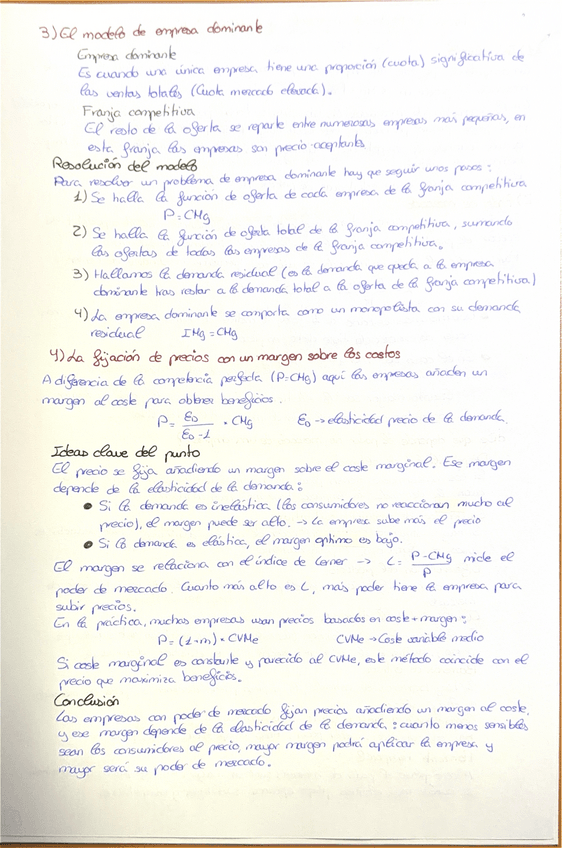 3) El modelo de empresa dominante
Empresa dominante
Es cuando una única empresa tiene una proporción (cuota) significativa de
las ventas totales (Cuota mercado elevada).
Franja competitiva
El resto de la oferta se reparte entre numerosas empresas más pequeñas, en
esta franja las empresas son precio-aceptantes
Resolución del modelo
Para resolver un problema de empresa dominante hay que seguir unos pasos:
1) Se halla la función de oferta de cada empresa de la franja competitiva
P=CMg
2) Se halla la función de oferta total de la franja competitiva, sumando
las ofertas de todas las empresas de la franja competitiva.
3) Hallamos la demanda residual (es la demanda que queda a la empresa
dominante tras restar a la demanda total a la oferta de la franja competitiva)
4) La empresa dominante se comporta como un monopolista con su demanda
residual IMg=CMg
4) La fijación de precios con un margen sobre los costos
A diferencia de la competencia perfecta (P=CMg) aquí las empresas añaden un
margen al coste para obtener beneficios.
P = ED / (ED - 1) · CMg ED → elasticidad precio de la demanda.
Ideas clave del punto
El precio se fija añadiendo un margen sobre el coste marginal. Ese margen
depende de la elasticidad de la demanda:
• Si la demanda es inelástica (los consumidores no reaccionan mucho al
precio), el margen puede ser alto. → La empresa sube más el precio
• Si la demanda es elástica, el margen optimo es bajo.
El margen se relaciona con el índice de Lerner → L = (P - CMg) / P mide el
poder de mercado. Cuanto más alto es L, más poder tiene la empresa para
subir precios.
En la práctica, muchas empresas usan precios basados en coste+margen:
P = (1+m) · CVMe CVMe → Coste variable medio
Si coste marginal es constante y parecido al CVMe, este método coincide con el
precio que maximiza beneficios.
Conclusión
Las empresas con poder de mercado fijan precios añadiendo un margen al coste,
y ese margen depende de la elasticidad de la demanda: cuanto menos sensibles
sean los consumidores al precio, mayor margen podrá aplicar la empresa y
mayor será su poder de mercado.